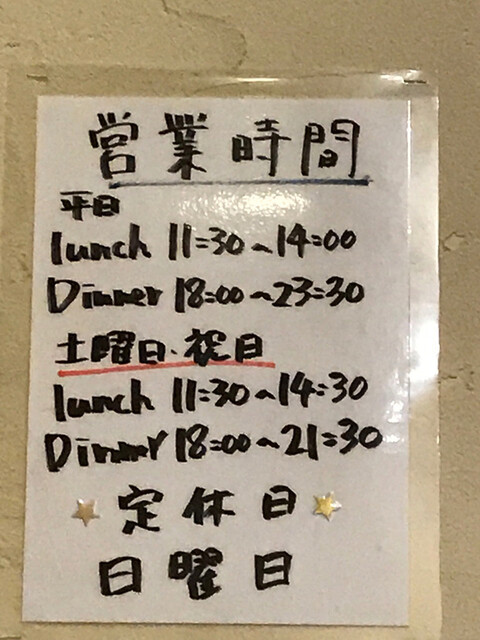 営業時間
平日
lunch 11:30~14:00
Dinner 18:00~23:30
土曜日·祝日
lunch 11:30~14:30
Dinner 18:00~21:30
定休日
日曜日